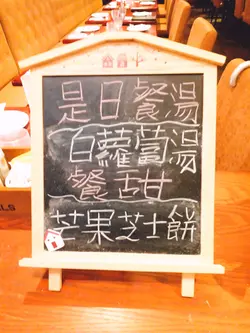 是日餐湯
白蘿蔔湯
餐甜
芒果芝士餅